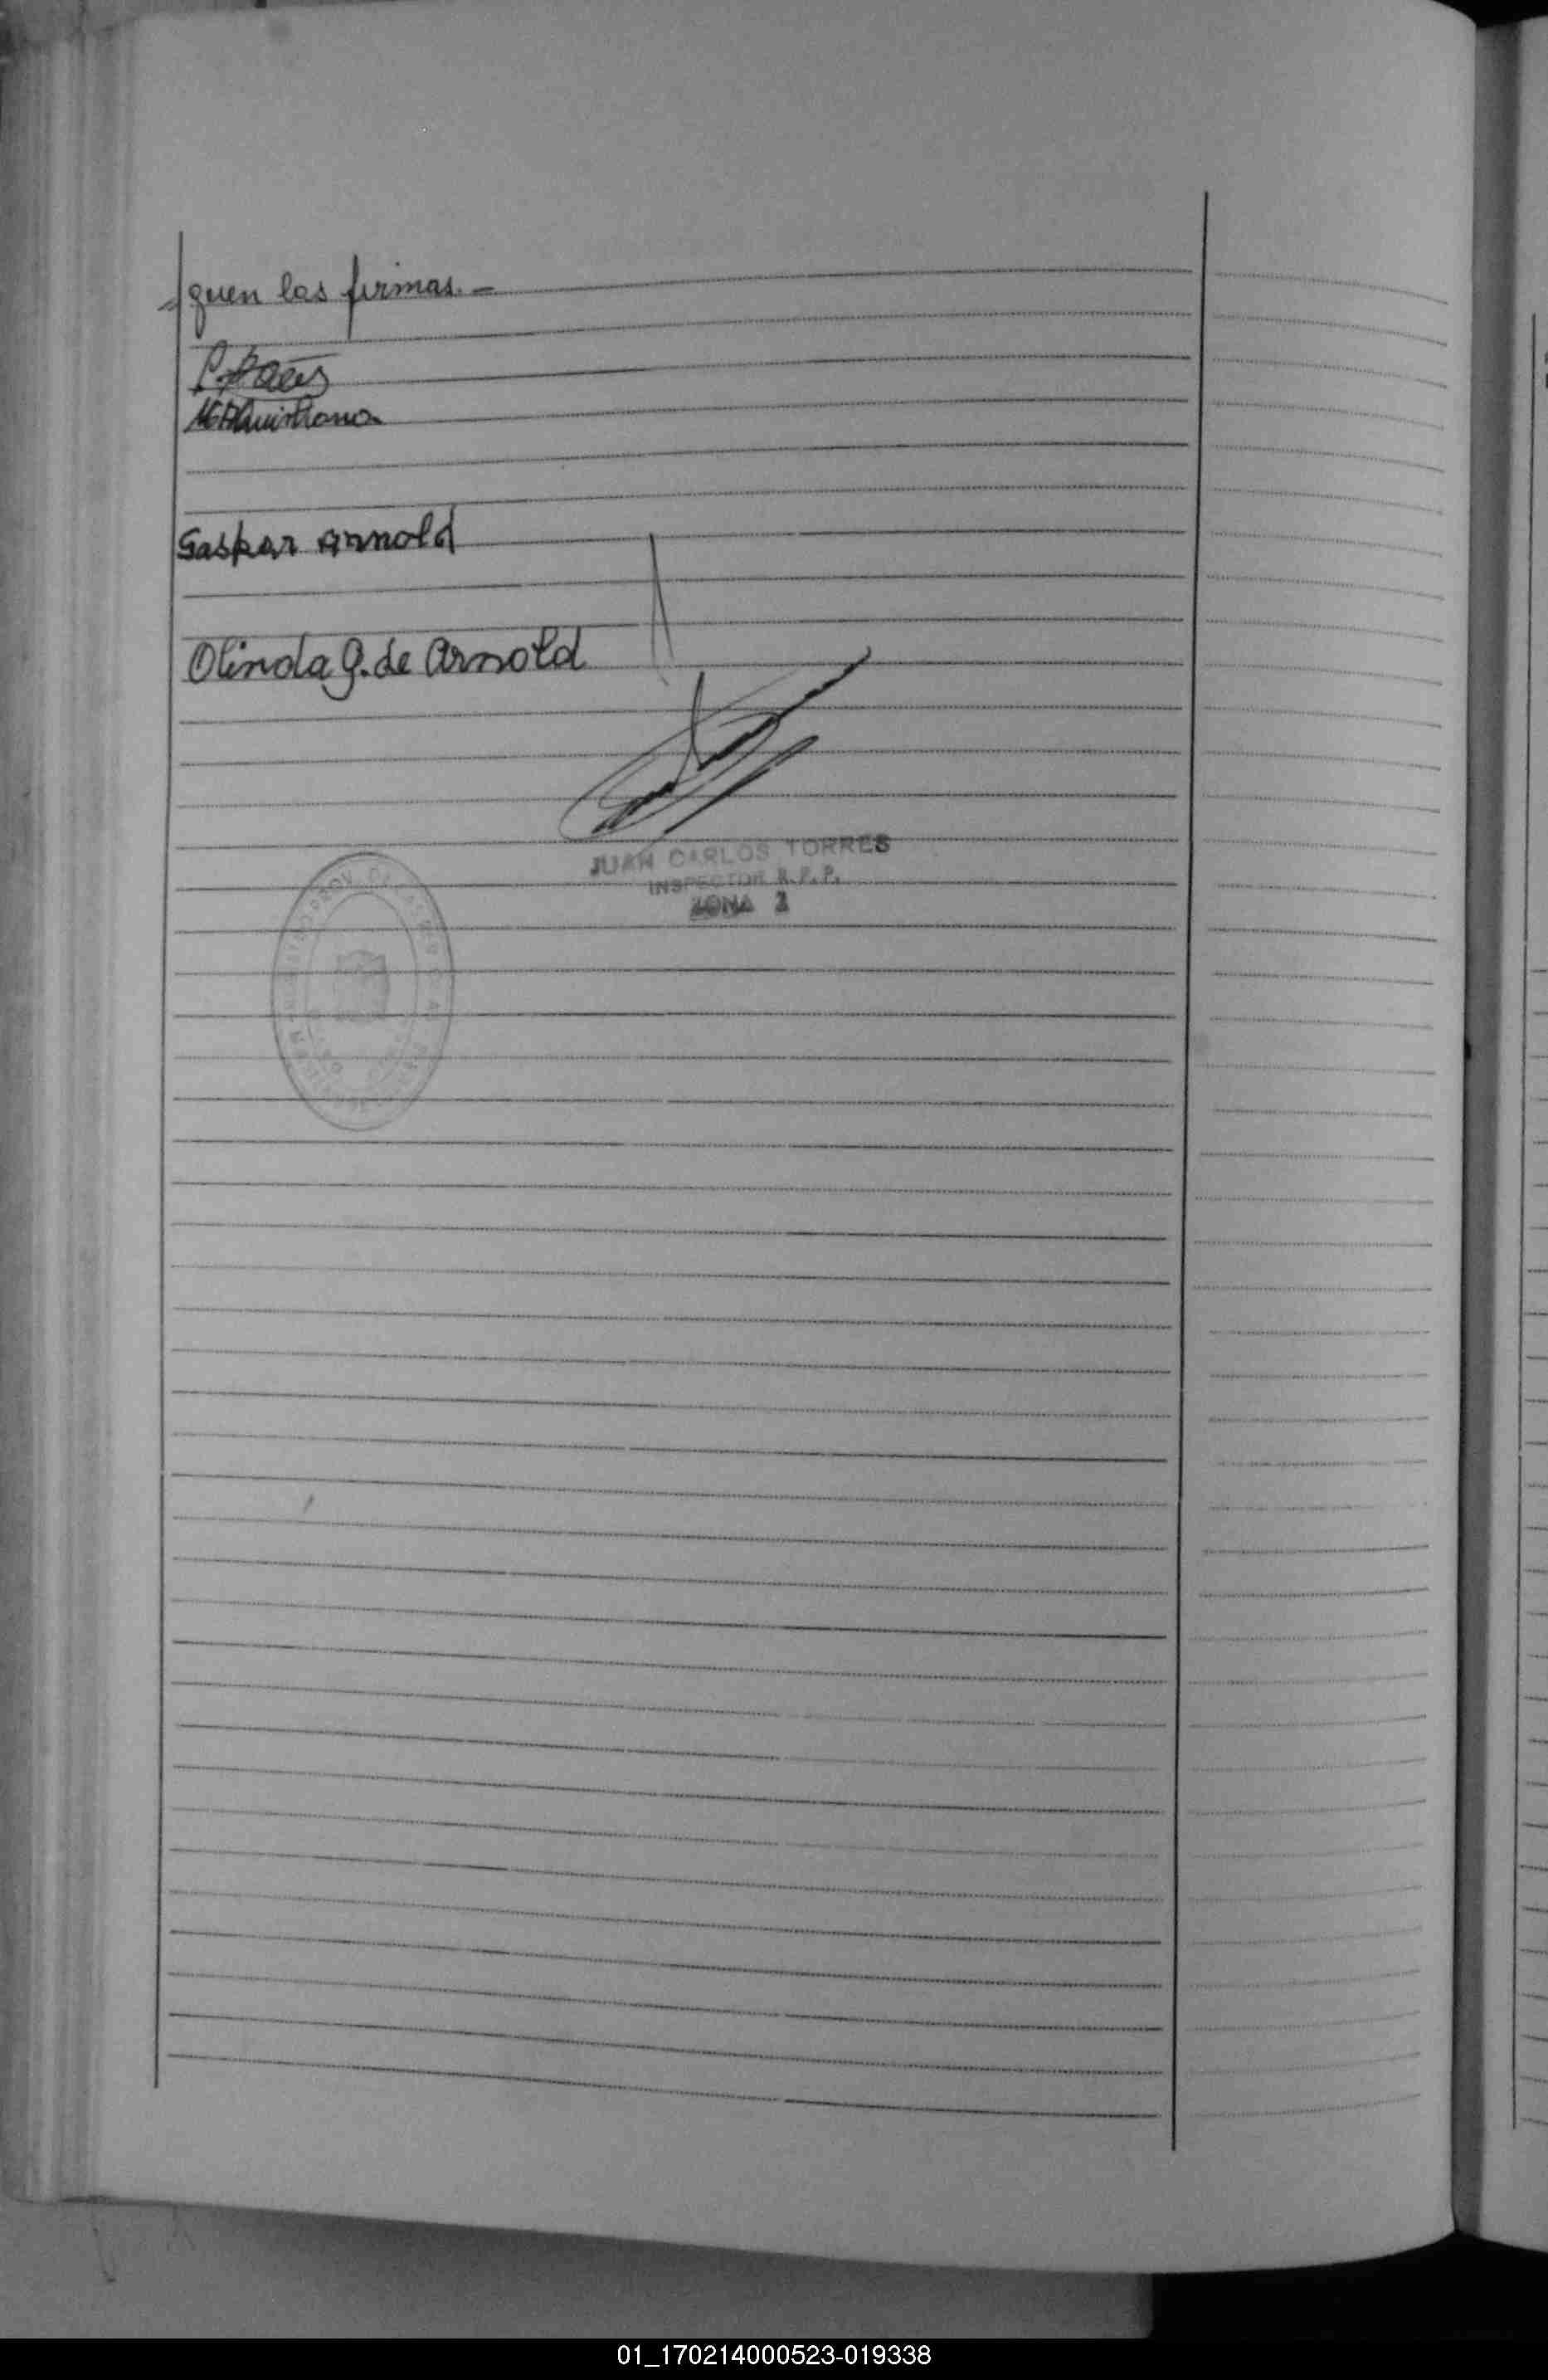 =guen las firmas.-
P. Baes
Gaspar Arnold
Olinda G. de Arnold
JUAN CARLOS TORRES
INSPECTOR R.P.P.
ZONA 2
01_170214000523-019338